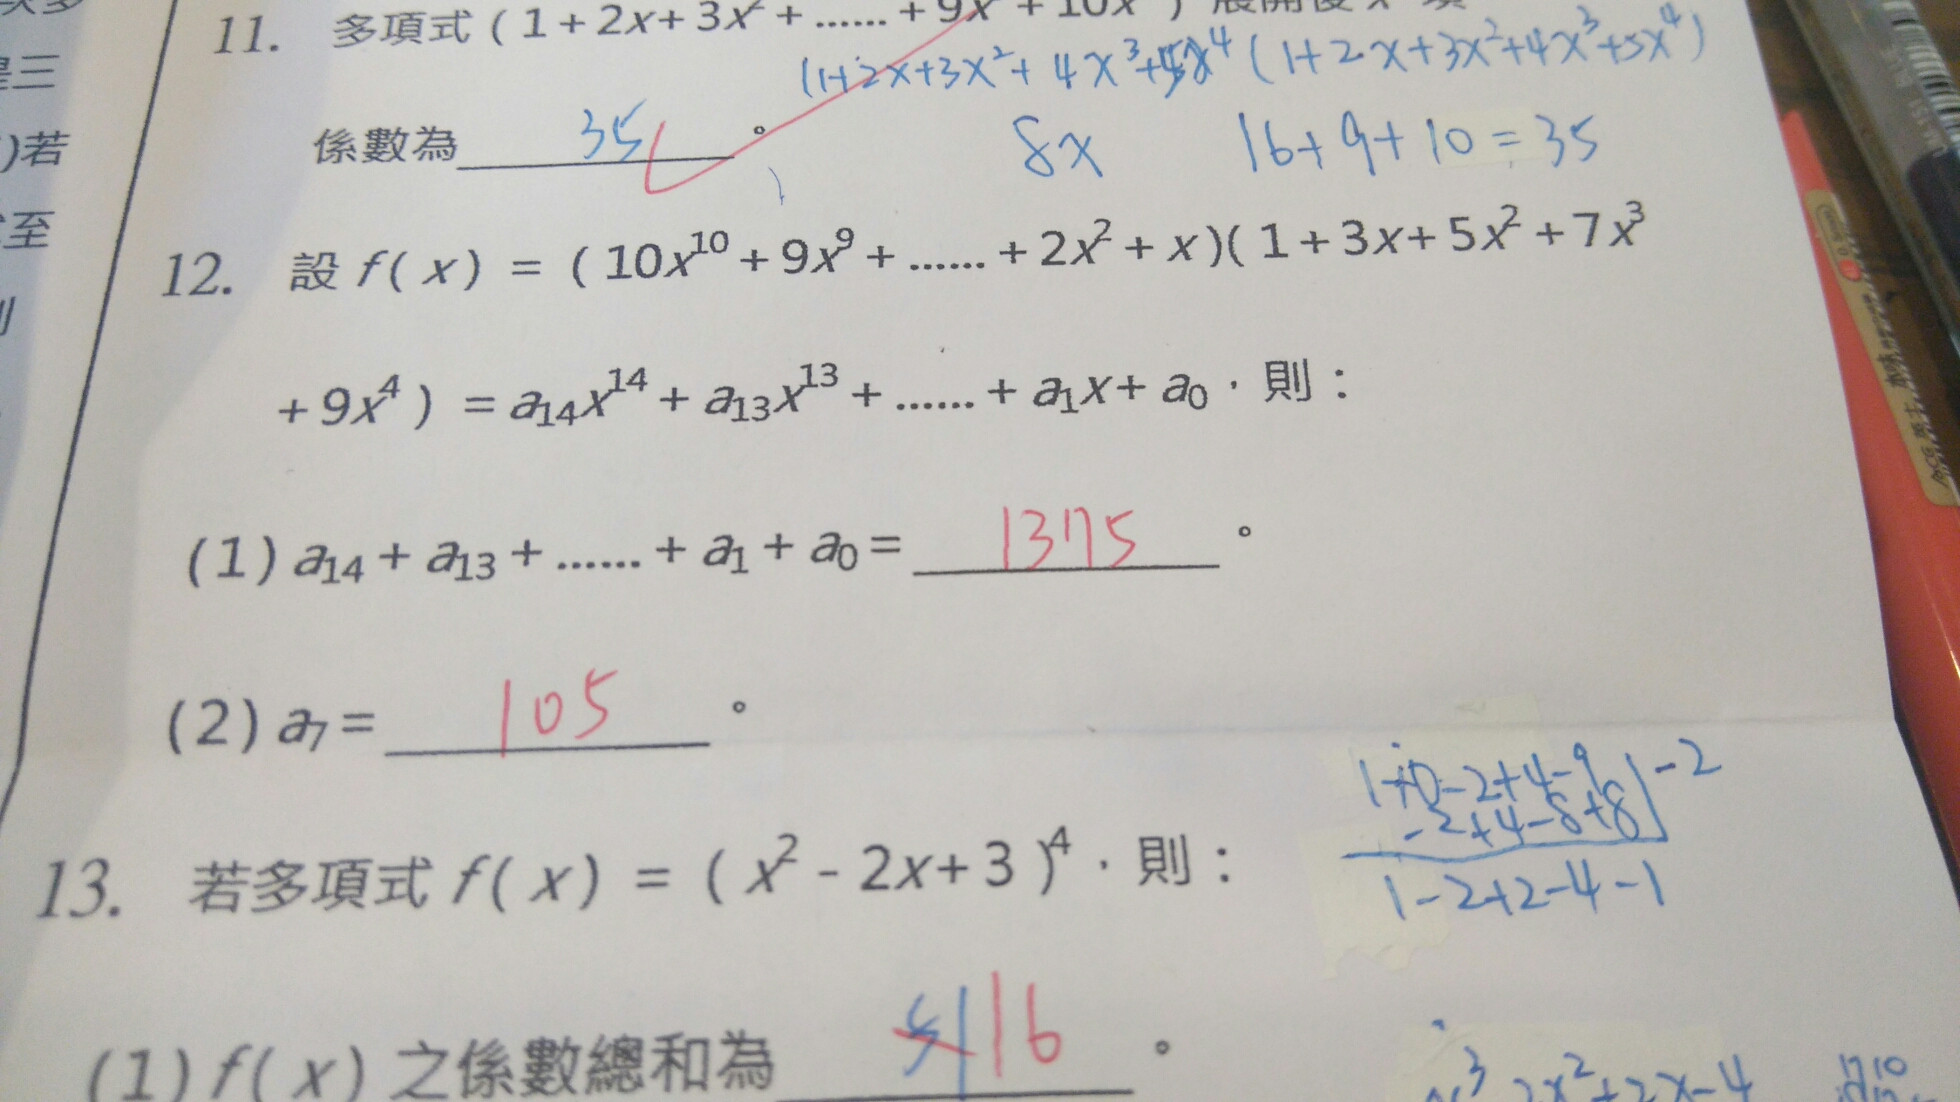 11. 多項式 ( 1 + 2x + 3x² + ...... + 9x + 10x )
(1+2x+3x²+ 4x³+5x⁴ (1+2x+3x²+4x³+5x⁴)
係數為 35 。
8x 16+9+10=35
12. 設 f( x ) = ( 10x¹⁰ + 9x⁹ + ...... + 2x² + x )( 1 + 3x + 5x² + 7x³
+ 9x⁴ ) = a₁₄x¹⁴ + a₁₃x¹³ + ...... + a₁x + a₀ , 則 :
(1) a₁₄ + a₁₃ + ...... + a₁ + a₀ = 1375 。
(2) a₇ = 105 。
1+0-2+4-9 | -2
-2+4-8+8
1-2+2-4-1
13. 若多項式 f( x ) = ( x² - 2x + 3 )⁴ , 則 :
(1) f( x ) 之係數總和為 16 。
x³ 2x²+2x-4
三
)若
至